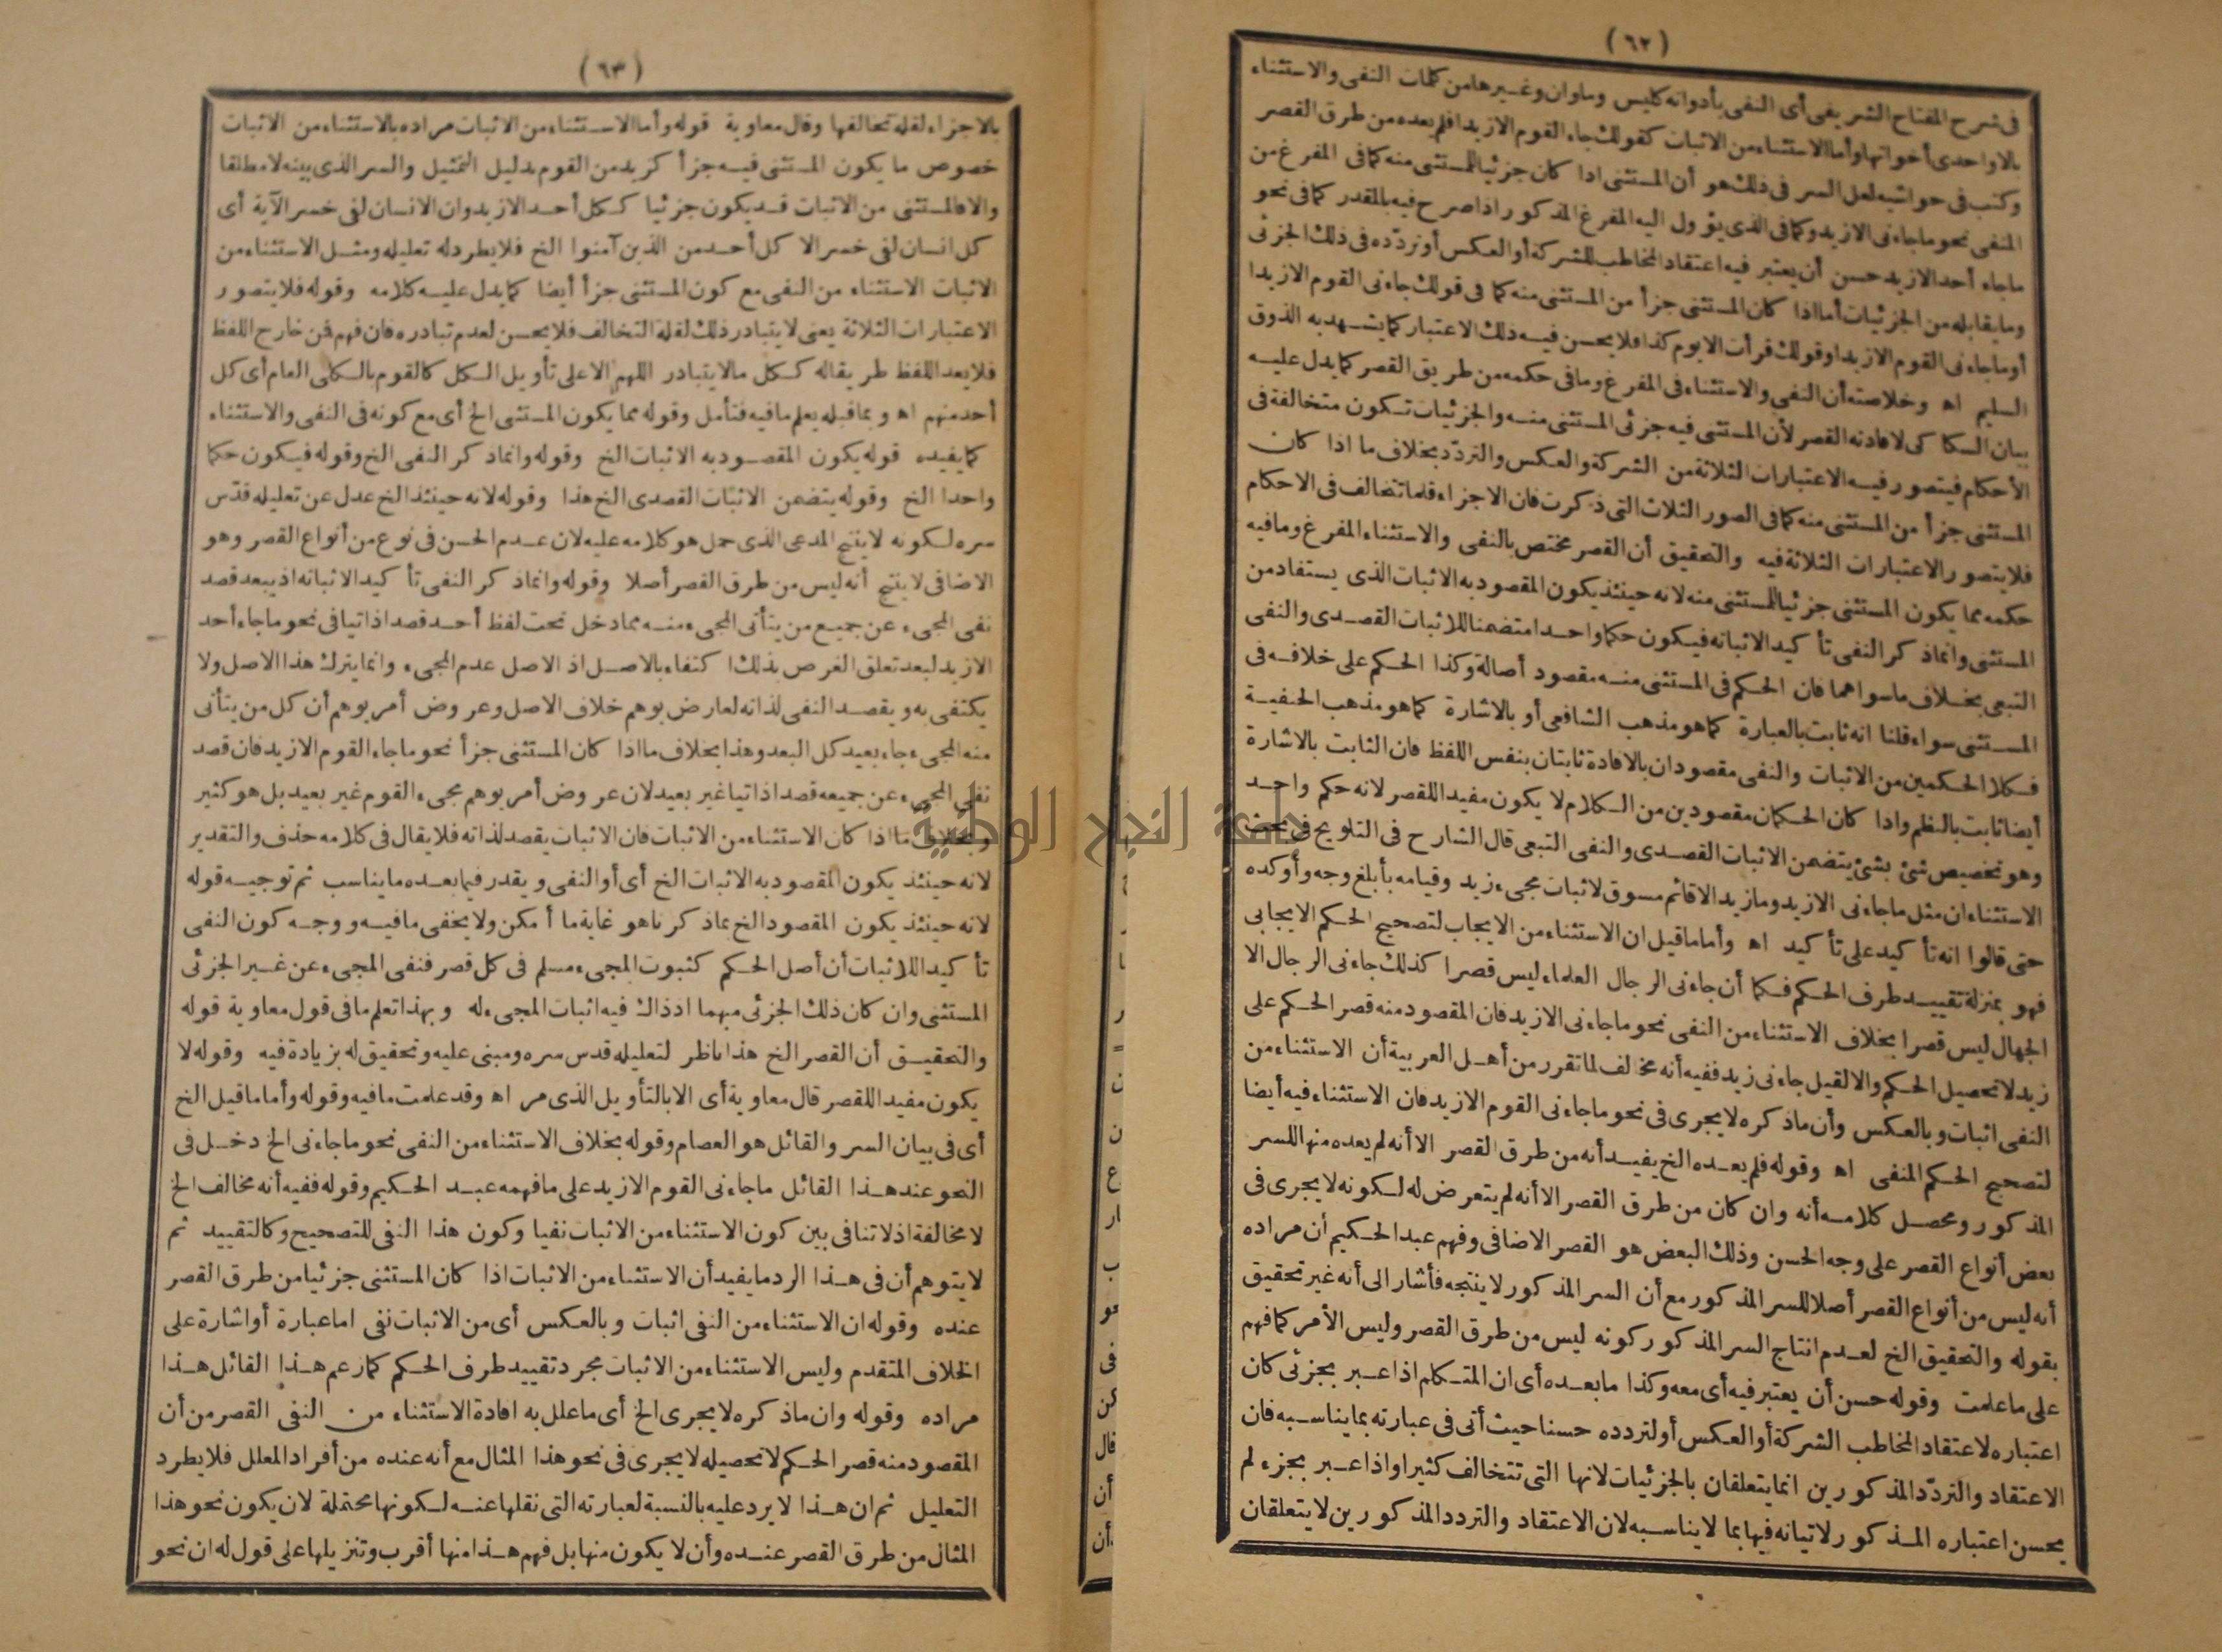 (٦٢)
فى شرح المفتاح الشريفى أى النفى بأدواته كليس وما وان وغيرها من كلمات النفى والاستثناء
بالا واحدى أخواتها وأما الاستثناء من الاثبات كقولك جاء القوم الا زيدا فلم يعده من طرق القصر
وكتب فى حواشيه لعل السر فى ذلك هو أن المستثنى اذا كان جزئيا للمستثنى منه كما فى المفرغ من
المنفى نحو ما جاءنى الا زيد وكما فى الذى يؤول اليه المفرغ المذكور اذا صرح فيه بالمقدر كما فى نحو
ما جاء أحد الا زيد حسن أن يعتبر فيه اعتقاد المخاطب للشركة أو العكس أو تردّده فى ذلك الجزئى
وما يقابله من الجزئيات أما اذا كان المستثنى جزأ من المستثنى منه كما فى قولك جاءنى القوم الا زيدا
أو ما جاءنى القوم الا زيدا وقولك قرأت الا يوم كذا فلا يحسن فيه ذلك الاعتبار كما يشهد به الذوق
السليم اه وخلاصته أن النفى والاستثناء فى المفرغ وما فى حكمه من طريق القصر كما يدل عليه
بيان السكاكى لافادته القصر لأن المستثنى فيه جزئى المستثنى منه والجزئيات تكون متخالفة فى
الأحكام فيتصور فيه الاعتبارات الثلاثة من الشركة والعكس والتردّد بخلاف ما اذا كان
المستثنى جزأ من المستثنى منه كما فى الصور الثلاث التى ذكرت فان الاجزاء قلما تتخالف فى الاحكام
فلا يتصور الاعتبارات الثلاثة فيه والتحقيق أن القصر مختص بالنفى والاستثناء المفرغ وما فيه
حكمه مما يكون المستثنى جزئيا للمستثنى منه لانه حينئذ يكون المقصود به الاثبات الذى يستفاد من
المستثنى وانما ذكر النفى تأكيد الاثباته فيكون حكما واحدا متضمنا للاثبات القصدى والنفى
التبعى بخلاف ما سواهما فان الحكم فى المستثنى منه مقصود أصالة وكذا الحكم على خلافه فى
المستثنى سواء قلنا انه ثابت بالعبارة كما هو مذهب الشافعى أو بالاشارة كما هو مذهب الحنفية
فكلا الحكمين من الاثبات والنفى مقصودان بالافادة ثابتان بنفس اللفظ فان الثابت بالاشارة
أيضا ثابت بالنظم واذا كان الحكمان مقصودين من الكلام لا يكون مفيدا للقصر لانه حكم واحد
وهو تخصيص شئ بشئ يتضمن الاثبات القصدى والنفى التبعى قال الشارح فى التلويح فى بحث
الاستثناء ان مثل ما جاءنى الا زيد وما زيد الا قائم مسوق لاثبات مجىء زيد وقيامه بأبلغ وجه وأوكده
حتى قالوا انه تأكيد على تأكيد اه وأما ما قيل ان الاستثناء من الايجاب لتصحيح الحكم الايجابى
فهو بمنزلة تقييد طرف الحكم فكما أن جاءنى الرجال العلماء ليس قصرا كذلك جاءنى الرجال الا
الجهال ليس قصرا بخلاف الاستثناء من النفى نحو ما جاءنى الا زيد فان المقصود منه قصر الحكم على
زيد لا تحصيل الحكم والا لقيل جاءنى زيد ففيه أنه مخالف لما تقرر من أهل العربية أن الاستثناء من
النفى اثبات وبالعكس وأن ما ذكره لا يجرى فى نحو ما جاءنى القوم الا زيد فان الاستثناء فيه أيضا
لتصحيح الحكم المنفى اه وقوله فلم يعده الخ يفيد أنه من طرق القصر الا أنه لم يعده منها للسر
المذكور ومحصل كلامه أنه وان كان من طرق القصر الا أنه لم يتعرض له لكونه لا يجرى فى
بعض أنواع القصر على وجه الحسن وذلك البعض هو القصر الاضافى وفهم عبد الحكيم أن مراده
أنه ليس من أنواع القصر أصلا للسر المذكور مع أن السر المذكور لا ينتجه فأشار الى أنه غير تحقيق
بقوله والتحقيق الخ لعدم انتاج السر المذكور كونه ليس من طرق القصر وليس الأمر كما فهم
على ما علمت وقوله حسن أن يعتبر فيه أى معه وكذا ما بعده أى ان المتكلم اذا عبر بجزئى كان
اعتباره لاعتقاد المخاطب الشركة أو العكس أو لتردده حسنا حيث أتى فى عبارته بما يناسبه فان
الاعتقاد والتردّد المذكورين انما يتعلقان بالجزئيات لانها التى تتخالف كثيرا واذا عبر بجزء لم
يحسن اعتباره المذكور لاتيانه فيها بما لا يناسبه لان الاعتقاد والتردد المذكورين لا يتعلقان
(٦٣)
بالاجزاء لقلة تخالفها وقال معاوية قوله وأما الاستثناء من الاثبات مراده بالاستثناء من الاثبات
خصوص ما يكون المستثنى فيه جزأ كزيد من القوم بدليل التمثيل والسر الذى بينه لا مطلقا
والا فالمستثنى من الاثبات قد يكون جزئيا ككل أحد الا زيد وان الانسان لفى خسر الآية أى
كل انسان لفى خسر الا كل أحد من الذين آمنوا الخ فلا يطرد له تعليله ومثل الاستثناء من
الاثبات الاستثناء من النفى مع كون المستثنى جزأ أيضا كما يدل عليه كلامه وقوله فلا يتصور
الاعتبارات الثلاثة يعنى لا يتبادر ذلك لقلة التخالف فلا يحسن لعدم تبادره فان فهم فمن خارج اللفظ
فلا يعد اللفظ طريقا له ككل ما لا يتبادر اللهم الا على تأويل الكل كالقوم بالكلى العام أى كل
أحد منهم اه وبما قبله يعلم ما فيه فتأمل وقوله مما يكون المستثنى الخ أى مع كونه فى النفى والاستثناء
كما يفيده قوله يكون المقصود به الاثبات الخ وقوله وانما ذكر النفى الخ وقوله فيكون حكما
واحدا الخ وقوله يتضمن الاثبات القصدى الخ هذا وقوله لانه حينئذ الخ عدل عن تعليله قدّس
سره لكونه لا ينتج المدعى الذى حمل هو كلامه عليه لان عدم الحسن فى نوع من أنواع القصر وهو
الاضافى لا ينتج أنه ليس من طرق القصر أصلا وقوله وانما ذكر النفى تأكيد الاثباته اذ يبعد قصد
نفى المجىء عن جميع من يتأتى المجىء منه مما دخل تحت لفظ أحد قصدا ذاتيا فى نحو ما جاء أحد
الا زيد لبعد تعلق الغرض بذلك اكتفاء بالاصل اذ الاصل عدم المجىء وانما يترك هذا الاصل ولا
يكتفى به ويقصد النفى لذاته لعارض يوهم خلاف الاصل وعروض أمر يوهم أن كل من يتأتى
منه المجىء جاء بعيد كل البعد وهذا بخلاف ما اذا كان المستثنى جزأ نحو ما جاء القوم الا زيد فان قصد
نفى المجىء عن جميعه قصدا ذاتيا غير بعيد لان عروض أمر يوهم مجىء القوم غير بعيد بل هو كثير
وبخلاف ما اذا كان الاستثناء من الاثبات فان الاثبات يقصد لذاته فلا يقال فى كلامه حذف والتقدير
لانه حينئذ يكون المقصود به الاثبات الخ أى أو النفى ويقدر فيما بعده ما يناسب ثم توجيه قوله
لانه حينئذ يكون المقصود الخ بما ذكرنا هو غاية ما أمكن ولا يخفى ما فيه ووجه كون النفى
تأكيدا للاثبات أن أصل الحكم كثبوت المجىء مسلم فى كل قصر فنفى المجىء عن غير الجزئى
المستثنى وان كان ذلك الجزئى مبهما اذ ذاك فيه اثبات المجىء له وبهذا تعلم ما فى قول معاوية قوله
والتحقيق أن القصر الخ هذا ناظر لتعليله قدس سره ومبنى عليه وتحقيق له بزيادة فيه وقوله لا
يكون مفيدا للقصر قال معاوية أى الا بالتأويل الذى مر اه وقد علمت ما فيه وقوله وأما ما قيل الخ
أى فى بيان السر والقائل هو العصام وقوله بخلاف الاستثناء من النفى نحو ما جاءنى الخ دخل فى
النحو عند هذا القائل ما جاءنى القوم الا زيد على ما فهمه عبد الحكيم وقوله ففيه أنه مخالف الخ
لا مخالفة اذ لا تنافى بين كون الاستثناء من الاثبات نفيا وكون هذا النفى للتصحيح وكالتقييد ثم
لا يتوهم أن فى هذا الرد ما يفيد أن الاستثناء من الاثبات اذا كان المستثنى جزئيا من طرق القصر
عنده وقوله ان الاستثناء من النفى اثبات وبالعكس أى من الاثبات نفى اما عبارة أو اشارة على
الخلاف المتقدم وليس الاستثناء من الاثبات مجرد تقييد طرف الحكم كما زعم هذا القائل هذا
مراده وقوله وان ما ذكره لا يجرى الخ أى ما علل به افادة الاستثناء من النفى القصر من أن
المقصود منه قصر الحكم لا تحصيله لا يجرى فى نحو هذا المثال مع أنه عنده من أفراد المعلل فلا يطرد
التعليل ثم ان هذا لا يرد عليه بالنسبة لعبارته التى نقلها عنه لكونها محتملة لان يكون نحو هذا
المثال من طرق القصر عنده وأن لا يكون منها بل فهم هذا منها أقرب وتنزيلها على قول له ان نحو
جامعة النجاح الوطنية